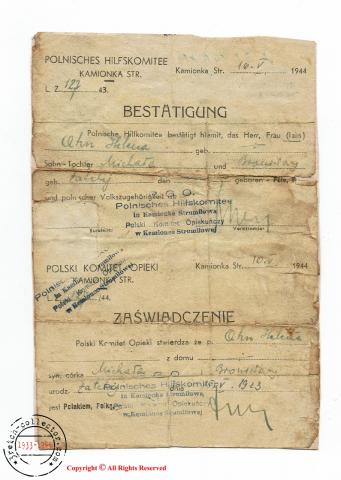 POLNISCHES HILFSKOMITEE
KAMIONKA STR.
Kamionka Str. 10.V 1944
L. Z. 127 43.
BESTÄTIGUNG
Polnische Hilfkomitee bestätigt hiemit, das Herr, Frau (lain)
Ohn Helena geb.
Sohn-Tochter Michała und Bronisławy
geb. den geboren
und polnischer Volkszugehörigkeit ist
P. O. O.
Polnisches Hilfskomitee
in Kamionka Strumilowa
Polski Komitet Opiekuńczy
w Kamionce Strumiłowej
Vorsitzender
POLSKI KOMITET OPIEKI
KAMIONKA STR.
Kamionka Str. 10.V 1944
/44.
Polnisches
in Kamionka
Polski Komitet
w Kamionce Strumiłowej
ZAŚWIADCZENIE
Polski Komitet Opieki stwierdza że p. Ohn Helena
z domu
syn, córka Michała i Bronisławy
urodz. dnia V. 1923
jest Polakiem, Polką.
Polnisches Hilfskomitee
in Kamionka Strumilowa
Polski Komitet Opiekuńczy
w Kamionce Strumiłowej
1933-1945
Copyright © All Rights Reserved